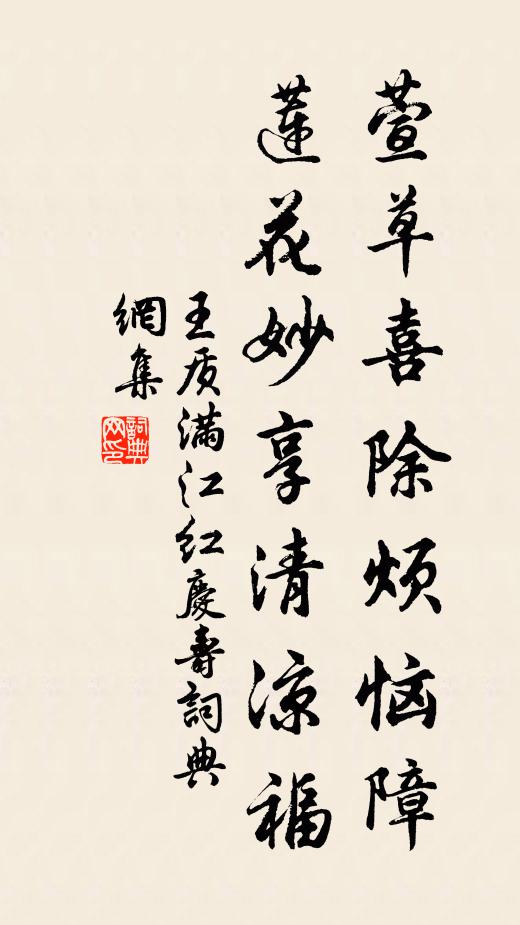 萱草喜除烦恼障
莲花妙享清凉福
王质满江红慶壽詞典
網集
詞典网印